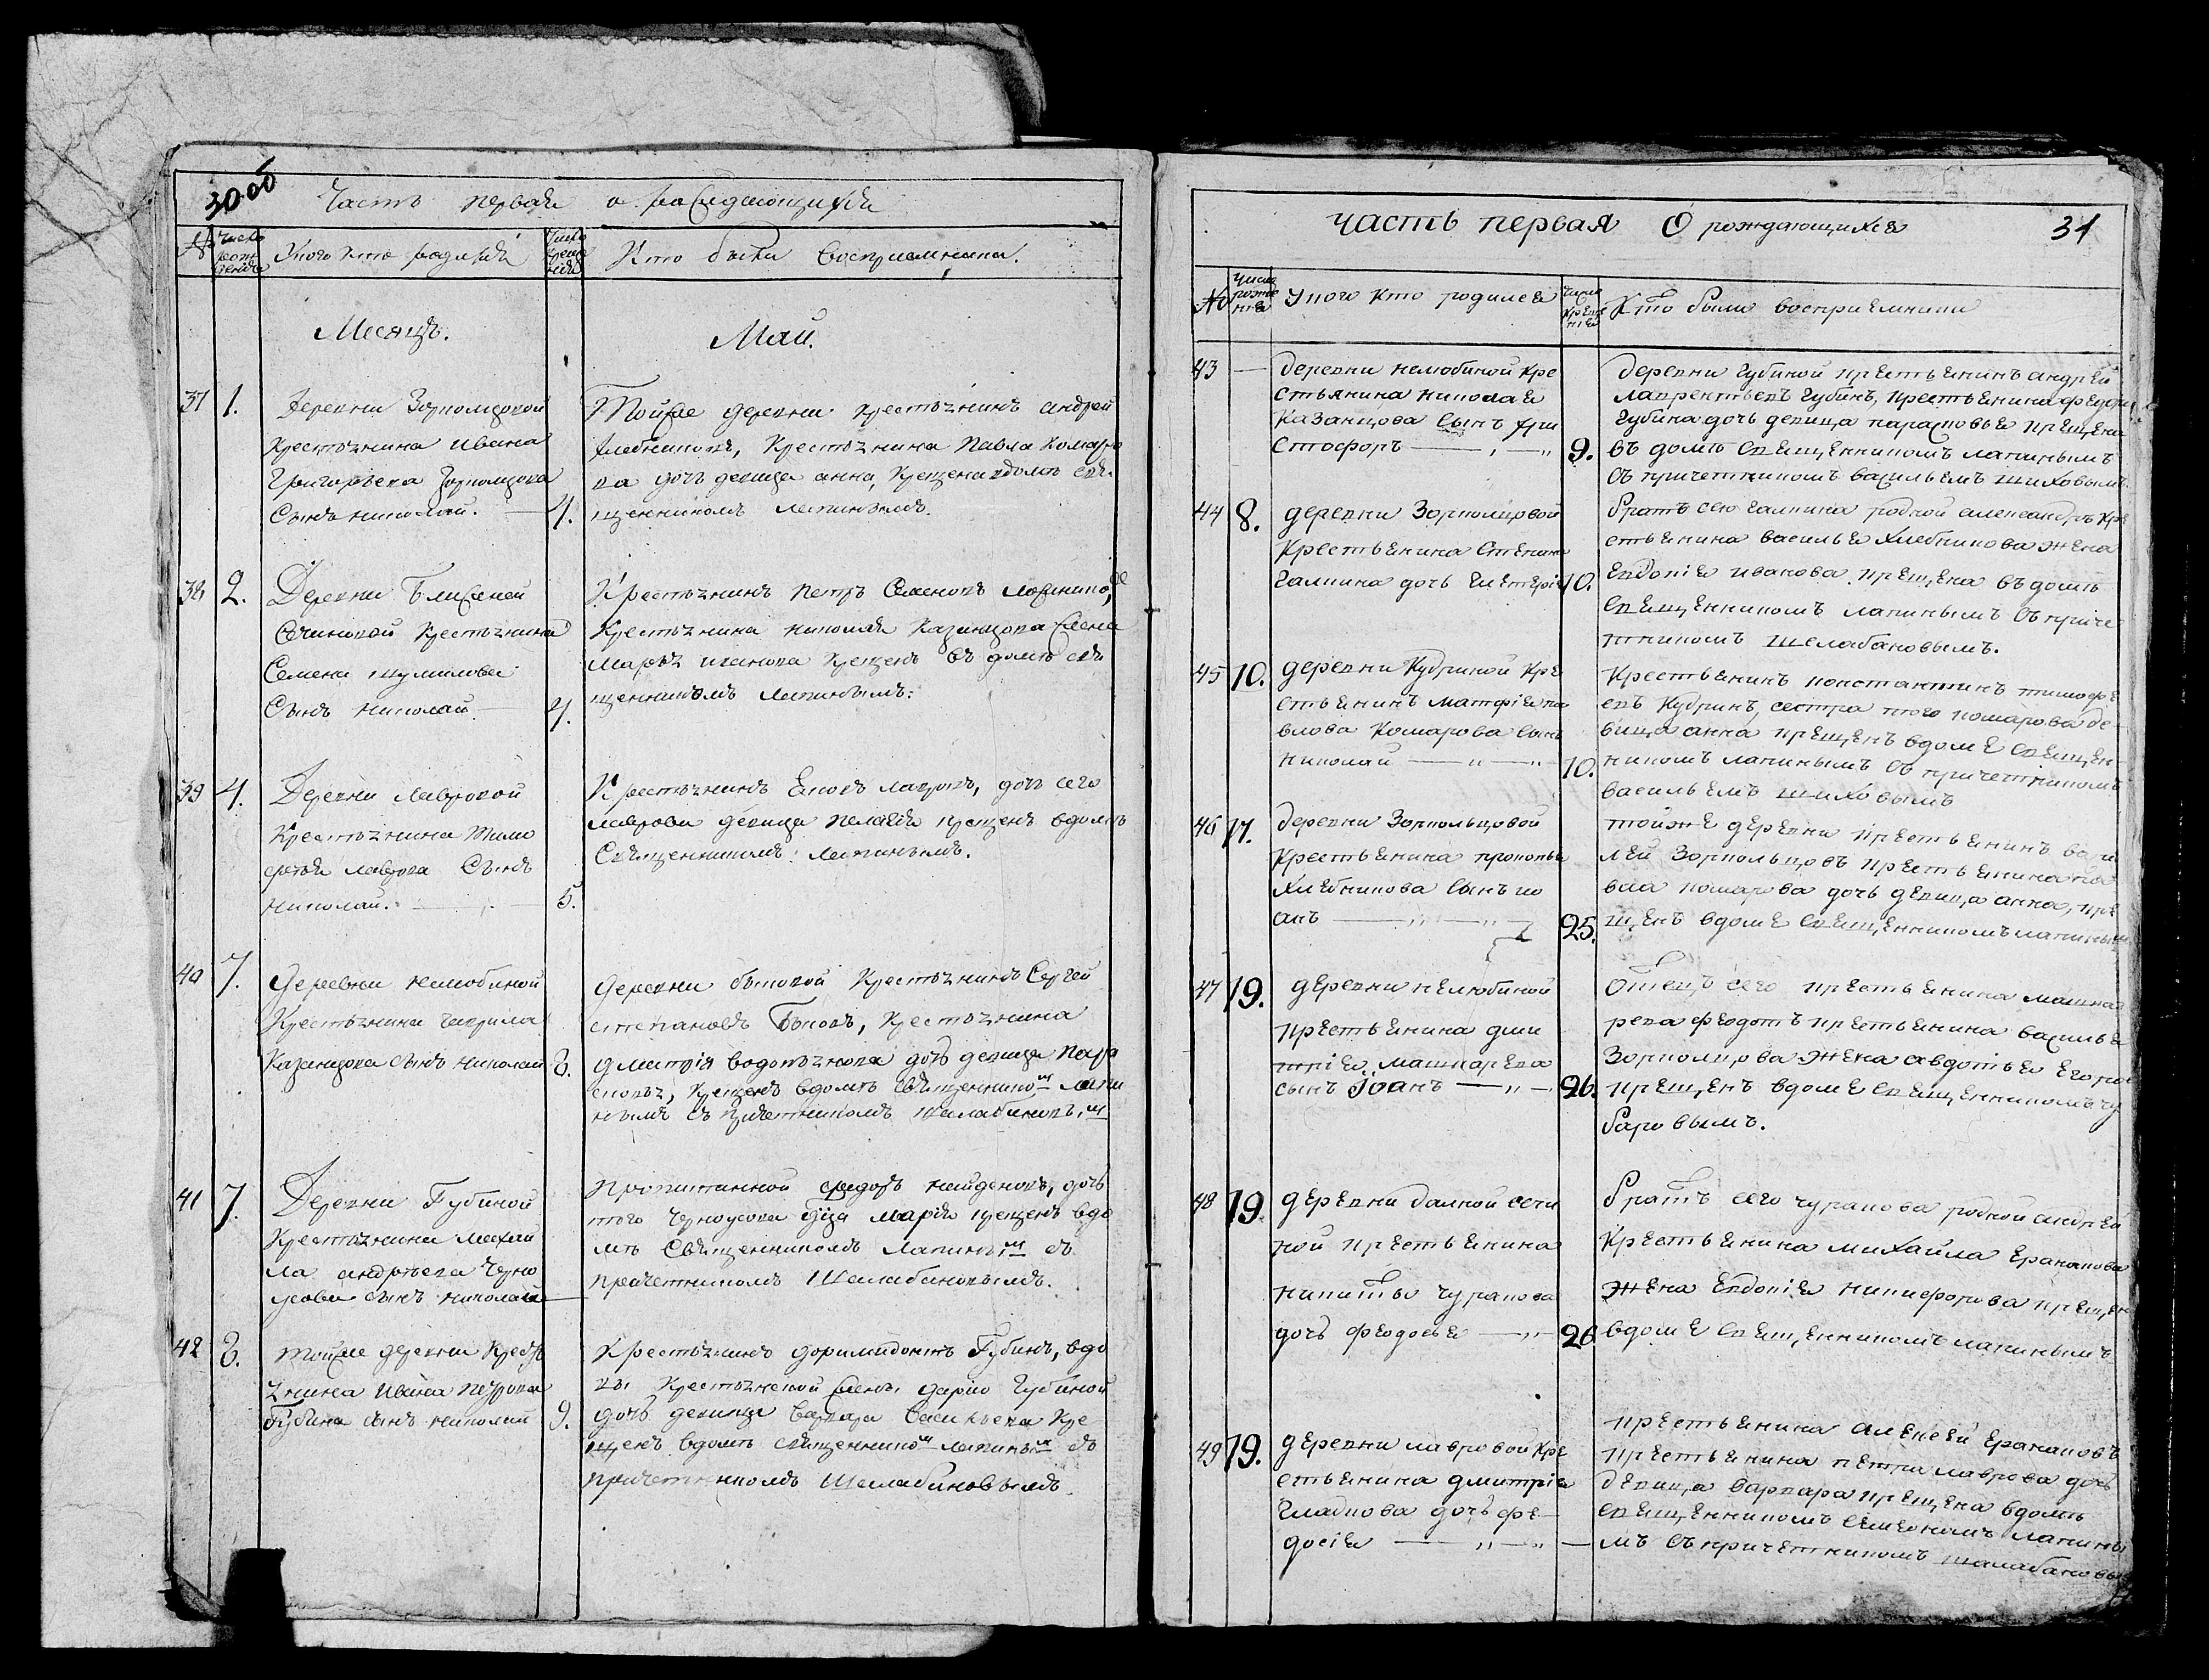 30 об
Часть первая о раждающихся
№ Число рождения У кого кто родился Число крещения Кто были восприемники.
Месяцъ. Май.
37 1. Деревни Зорколцовой
Крестьянина Ивана
Григорьева Зорколцова
Сынъ Николай. 4.
Тойже деревни крестьянинъ Андрей
Хлебниковъ, Крестьянина Павла Комаро
ва дочь девица Анна, Крещенъ вдомѣ свя
щенникомъ Лапинымъ.
38 2. Деревни Ближней
Крестьянина
Семена Шумилова
Сынъ Николай 4.
Крестьянинъ Петръ Семеновъ
Крестьянина Николая Казанцова жена
Марья Иванова Крещенъ въ домѣ свя
щенникомъ Лапинымъ.
39 4. Деревни Лавровой
Крестьянина Тимо
фея Лаврова Сынъ
Николай. 5.
Крестьянинъ Лавровъ, дочь сего
Лаврова девица Пелагея крещенъ вдомѣ
Священникомъ Лапинымъ.
40 7. Деревни Нелюбиной
Крестьянина Гаврила
Казанцова сынъ Николай 8.
Деревни Быковой Крестьянинъ Сергей
Степановъ Быковъ, Крестьянина
Дмитрія дочь девица Пара
сковья, Крещенъ вдомѣ священникомъ Лапи
нымъ съ причетникомъ Шалабановымъ
41 7. Деревни Губиной
Крестьянина Михаи
ла Андреева Черно
усова сынъ Николай
Найденовъ, дочь
того Черноусова Марія крещенъ вдо
мѣ Священникомъ Лапинымъ съ
причетникомъ Шелабановымъ.
42 8. Тойже деревни Кресть
янина Ивана Петрова
Губина сынъ Николай 9.
Крестьянинъ Доримидонтъ Губинъ, вдо
вы Крестьянской жены Даріи Губиной
дочь девица Варвара Васильева Кре
щенъ вдомѣ священникомъ Лапинымъ съ
причетникомъ Шелабановымъ.
часть первая О рождающихся 31
№ Число рожденія У кого кто родился Число крещенія Кто были восприемники
43 — деревни нелюбиной кре
стьянина николая
Казанцова сынъ хри
стофоръ 9.
деревни губиной крестьянинъ андрей
лаврентьевъ губинъ, крестьянина федора
губина дочь девица парасковья крещенъ
въ домѣ священникомъ лапинымъ
съ причетникомъ васильемъ шиховымъ.
44 8. деревни Зорколцовой
Крестьянина
галкина дочь 10.
братъ сего галкина родной александръ кре
стьянина василья хлебникова жена
Евдокія иванова крещена въ домѣ
священникомъ лапинымъ съ приче
тникомъ шелабановымъ.
45 10. деревни Кудриной кре
стьянинъ матфія па
влова Комарова сынъ
николай 10.
крестьянинъ константинъ тимофе
евъ Кудринъ, сестра того комарова де
вица анна крещенъ вдоме священ
никомъ лапинымъ съ причетникомъ
васильемъ шиховымъ
46 17. деревни Зоркольцовой
Крестьянина прокопья
Хлебникова сынъ іо
анъ 25.
тойже деревни крестьянинъ васи
лей Зоркольцовъ крестьянина па
вла комарова дочь девица анна, кре
щенъ вдоме священникомъ лапинымъ
47 19. деревни нелюбиной
крестьянина дми
трія машкарева
сынъ Іоанъ 26.
Отецъ сего крестьянина машка
рева феодотъ крестьянина василья
Зорколцова жена авдотья Егорова
крещенъ вдоме священникомъ чу
баровымъ.
48 19. деревни далной сечи
ной крестьянина
никиты чуракова
дочь феодосья 26
братъ сего чуракова родной андрей
Крестьянина михаила Ераканова
жена Евдокія никифорова крещена
вдоме священникомъ лапинымъ
49 19. деревни лавровой кре
стьянина дмитрія
гладкова дочь фе
досія
крестьянина алексей Еракановъ
крестьянина петра лаврова дочь
девица варвара крещена вдомѣ
священникомъ Симеономъ лапины
мъ съ причетникомъ шалабановы